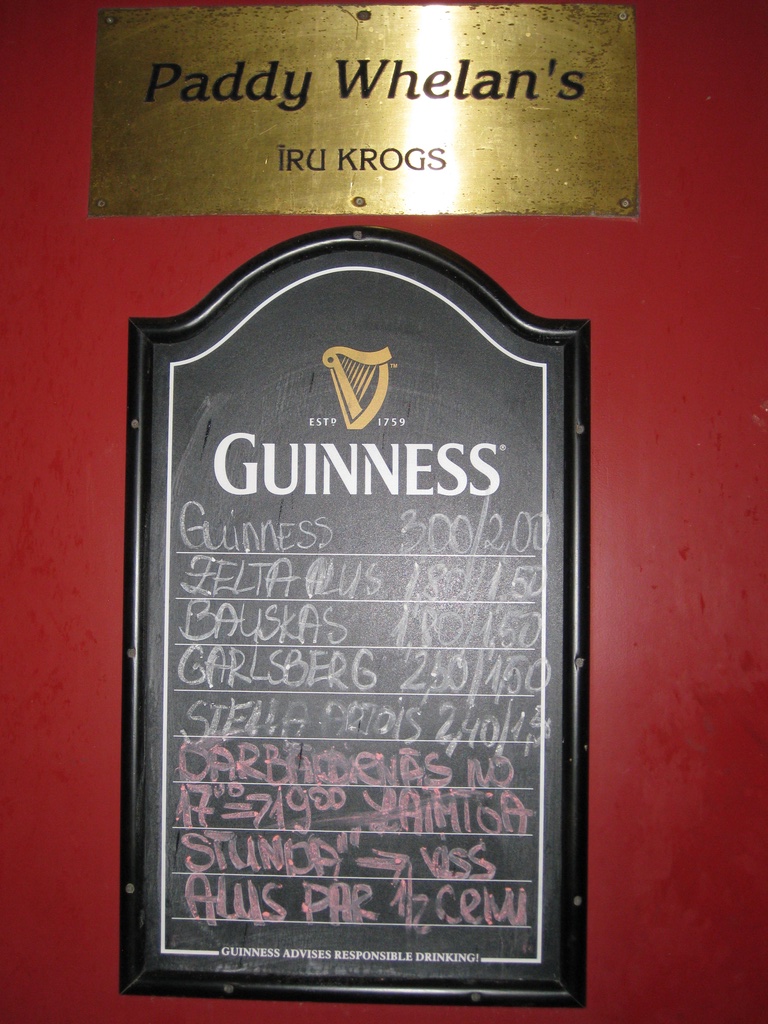 Paddy Whelan's
ĪRU KROGS
ESTD 1759
GUINNESS
Guinness 300/2,00
ZELTA ALUS 1,80/1,50
BAUSKAS 1,80/1,50
CARLSBERG 2,30/1,50
STELLA ARTOIS 2,40/1,5
DARBADIENĀS NO
17⁰⁰ → 19⁰⁰ LAIMĪGA
STUNDA"! → VISS
ALUS PAR 1/2 CENU
GUINNESS ADVISES RESPONSIBLE DRINKING!